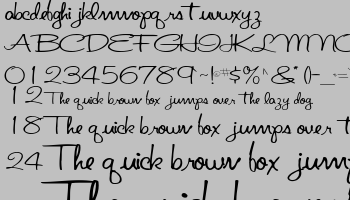 abcdefghi jklmnopq rst uvwxyz
ABCDEFGHIJKLMNO
0123456789~!@#$%^&*()-_=
12 The quick brown fox jumps over the lazy dog
18 The quick brown fox jumps over t
24 The quick brown fox jum